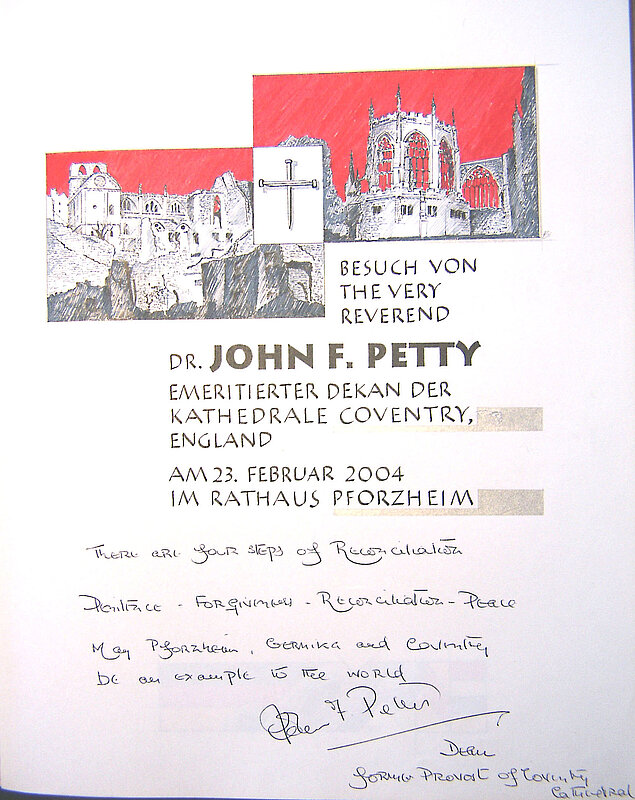 BESUCH VON
THE VERY
REVEREND
DR. JOHN F. PETTY
EMERITIERTER DEKAN DER
KATHEDRALE COVENTRY,
ENGLAND
AM 23. FEBRUAR 2004
IM RATHAUS PFORZHEIM
There are four steps of Reconciliation
Penitence - Forgiveness - Reconciliation - Peace
May Pforzheim, Gernika and Coventry
be an example to the world
John F. Petty
Dean
former Provost of Coventry
Cathedral